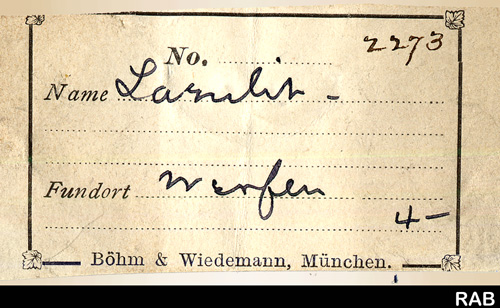 No. 2273
Name Lazulit -
Fundort Werfen
4-
Böhm & Wiedemann, München.
RAB